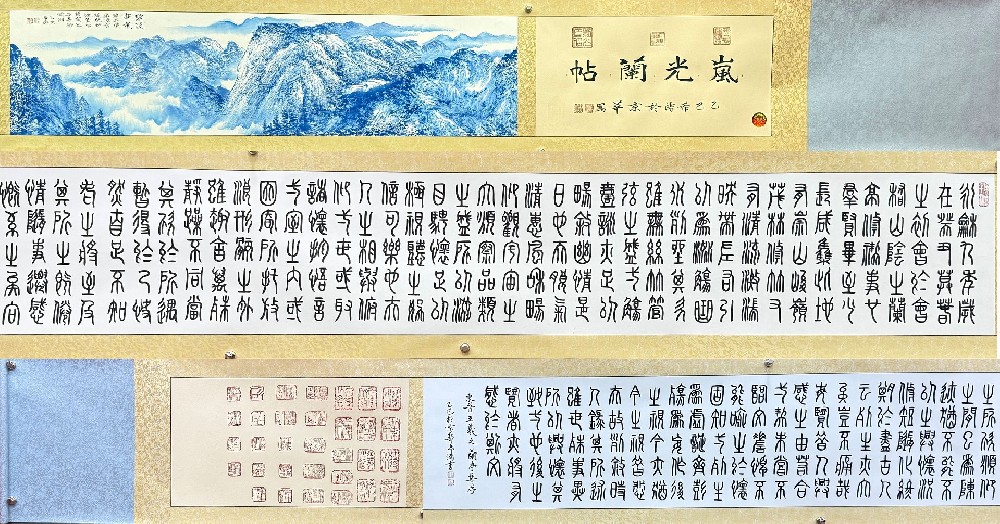 嵐光蘭帖
永龢九年歲
在癸丑莫春
之初會於會
稽山陰之蘭
亭脩禊事也
羣賢畢至少
長咸集此地
有崇山峻領
茂林脩竹又
有清流激湍
映帶左右引
以為流觴曲
水列坐其次
雖無絲竹管
弦之盛一觴
一詠亦足以
暢敘幽情是
日也天朗氣
清惠風和暢
仰觀宇宙之
大俯察品類
之盛所以遊
目騁懷足以
極視聽之娛
信可樂也夫
人之相與俯
仰一世或取
諸懷抱悟言
一室之內或
因寄所託放
浪形骸之外
雖趣舍萬殊
靜躁不同當
其欣於所遇
暫得於己快
然自足不知
老之將至及
其所之既倦
情隨事遷感
慨系之矣向
之所欣俯仰
之間已為陳
跡猶不能不
以之興懷況
脩短隨化終
期於盡古人
云死生亦大
矣豈不痛哉
每覽昔人興
感之由若合
一契未嘗不
臨文嗟悼不
能喻之於懷
固知一死生
為虛誕齊彭
殤為妄作後
之視今亦猶
今之視昔悲
夫故列敘時
人錄其所述
雖世殊事異
所以興懷其
致一也後之
覽者亦將有
感於斯文
東晉王羲之蘭亭集序